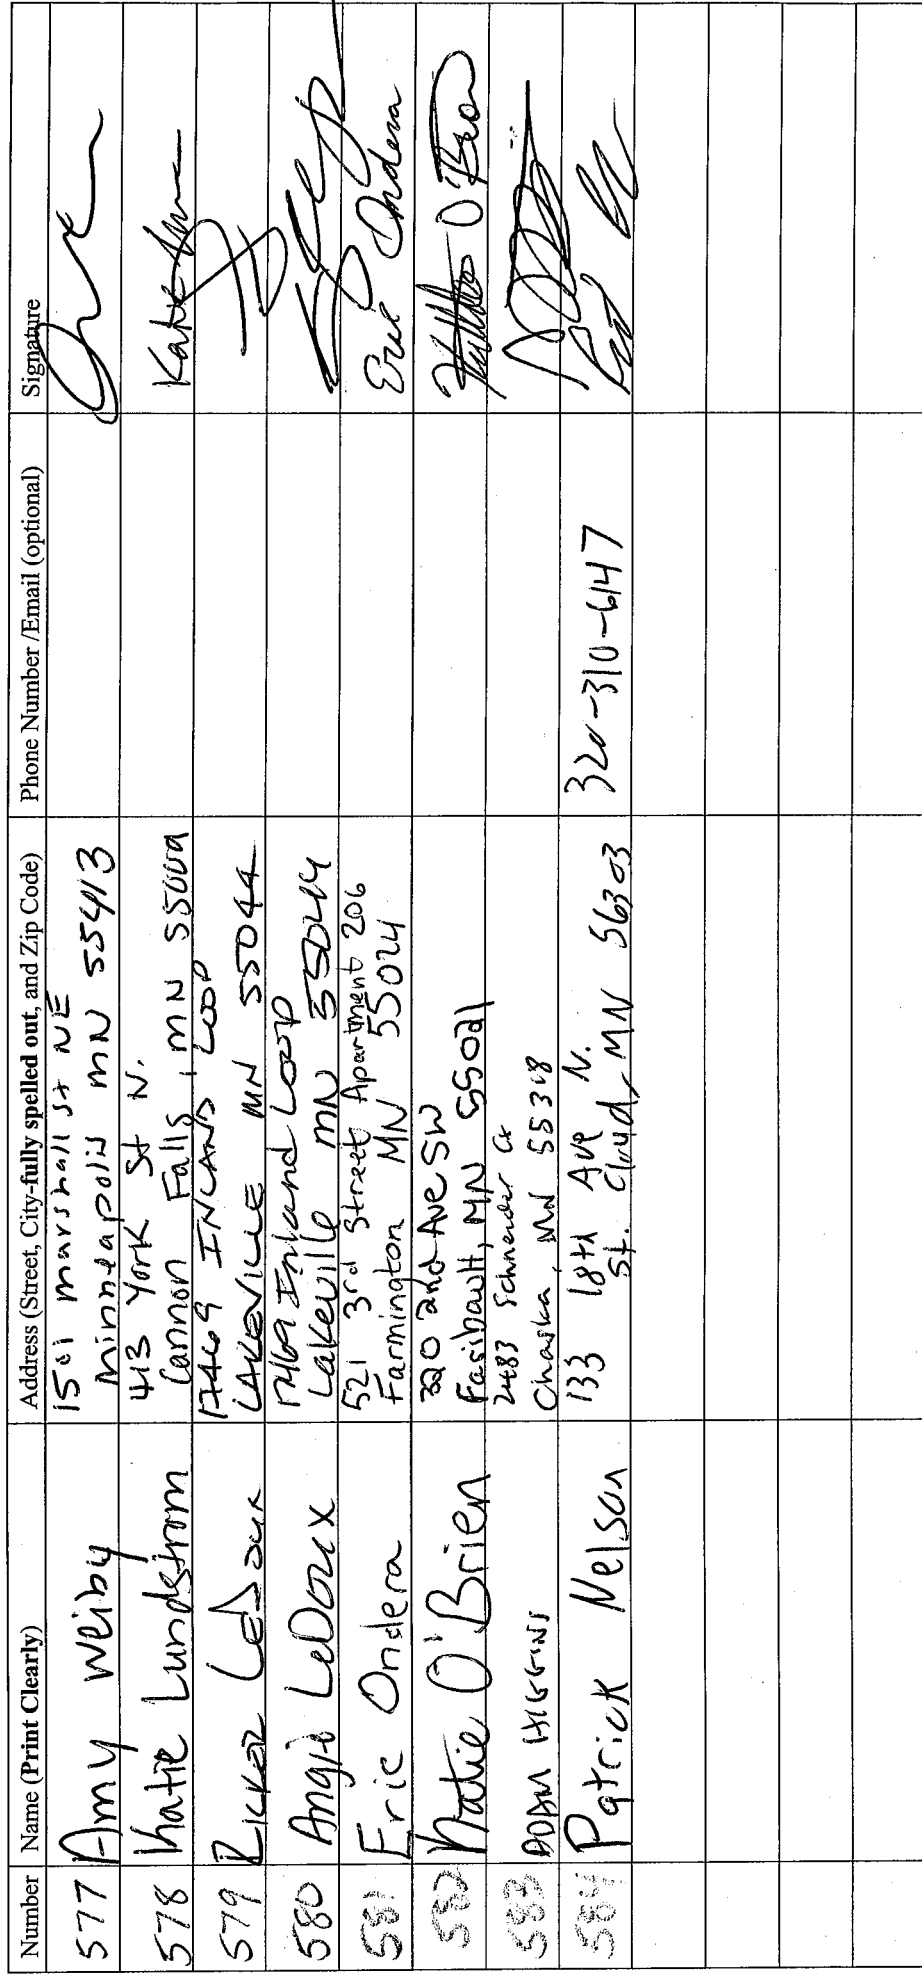 Number Name (Print Clearly) Address (Street, City-fully spelled out, and Zip Code) Phone Number /Email (optional) Signature
577 Amy Weiby 1501 marshall st NE
Minneapolis MN 55413
578 Katie Lundstrom 413 York St N. Katie
Cannon Falls, MN 55009
579 LeDoux 17469 INLAND LOOP
LAKEVILLE MN 55044
580 Angie LeDoux 17469 Inland Loop
Lakeville MN 55044
581 Eric Ondera 521 3rd Street Apartment 206 Eric Ondera
Farmington MN 55024
582 Katie O'Brien 320 2nd Ave SW O'Brien
Faribault, MN 55021
583 ADAM HIGGINS 2483 Schneider Ct
Chaska, MN 55318
584 Patrick Nelson 133 18th Ave N. 320-310-6147
St. Cloud, MN 56303